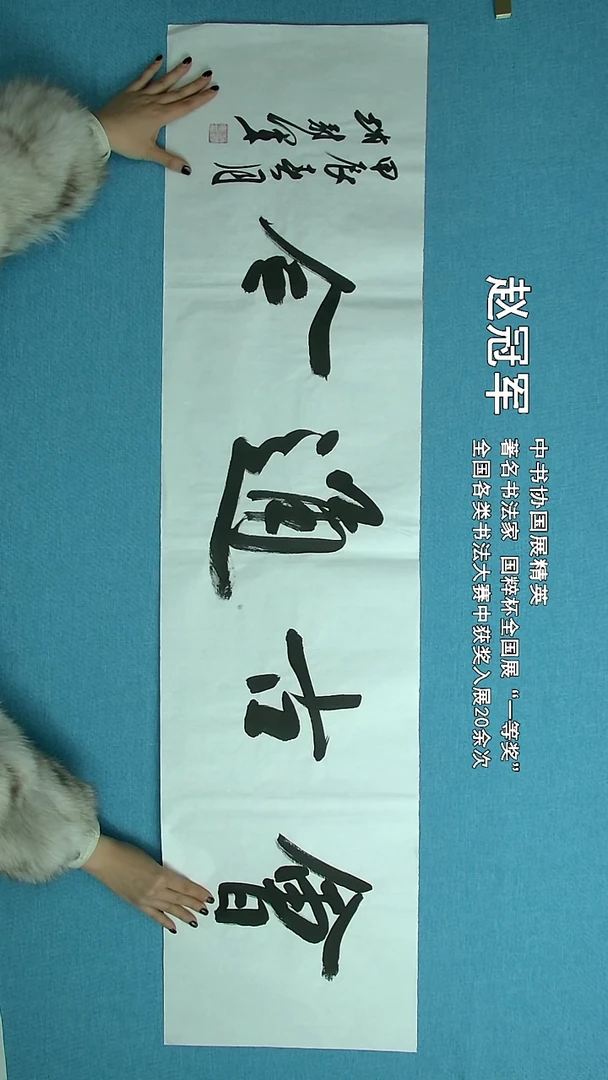 會古通今
甲辰
赵冠军
中书协国展精英
著名书法家 国粹杯全国展“一等奖”
全国各类书法大赛中获奖入展20余次